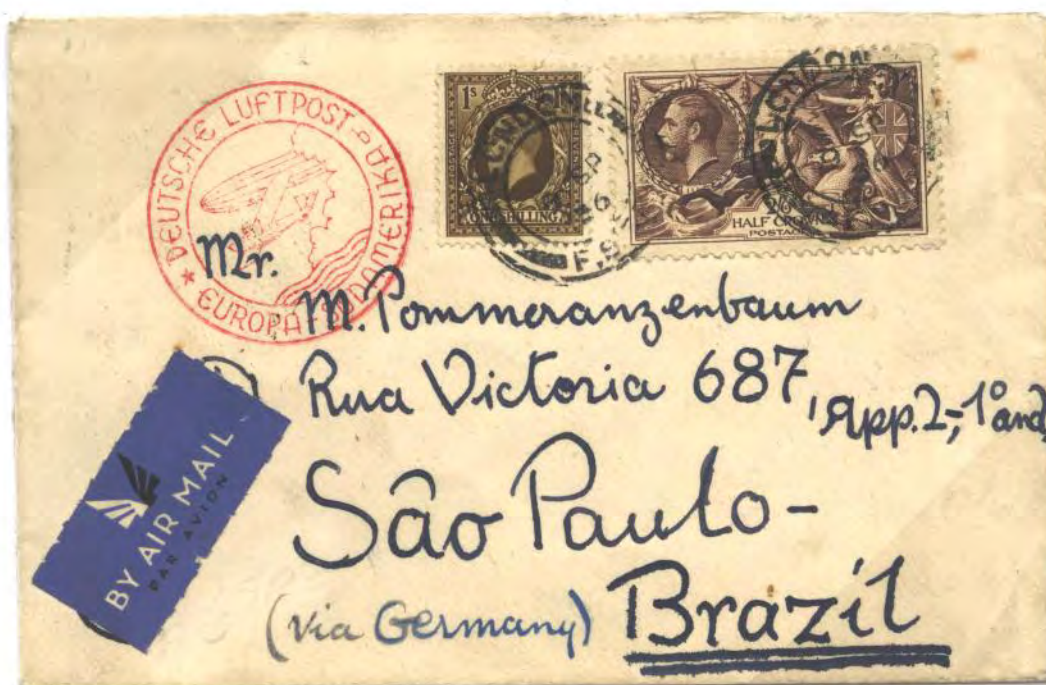 DEUTSCHE LUFTPOST
EUROPA-SÜDAMERIKA
1S
ONE SHILLING
POSTAGE
LONDON
F.S.
2/6
HALF CROWN
POSTAGE
LONDON
Mr.
M. Pommeranzenbaum
Rua Victoria 687, App. 2-, 1º and.
São Paulo-
(via Germany) Brazil
BY AIR MAIL
PAR AVION